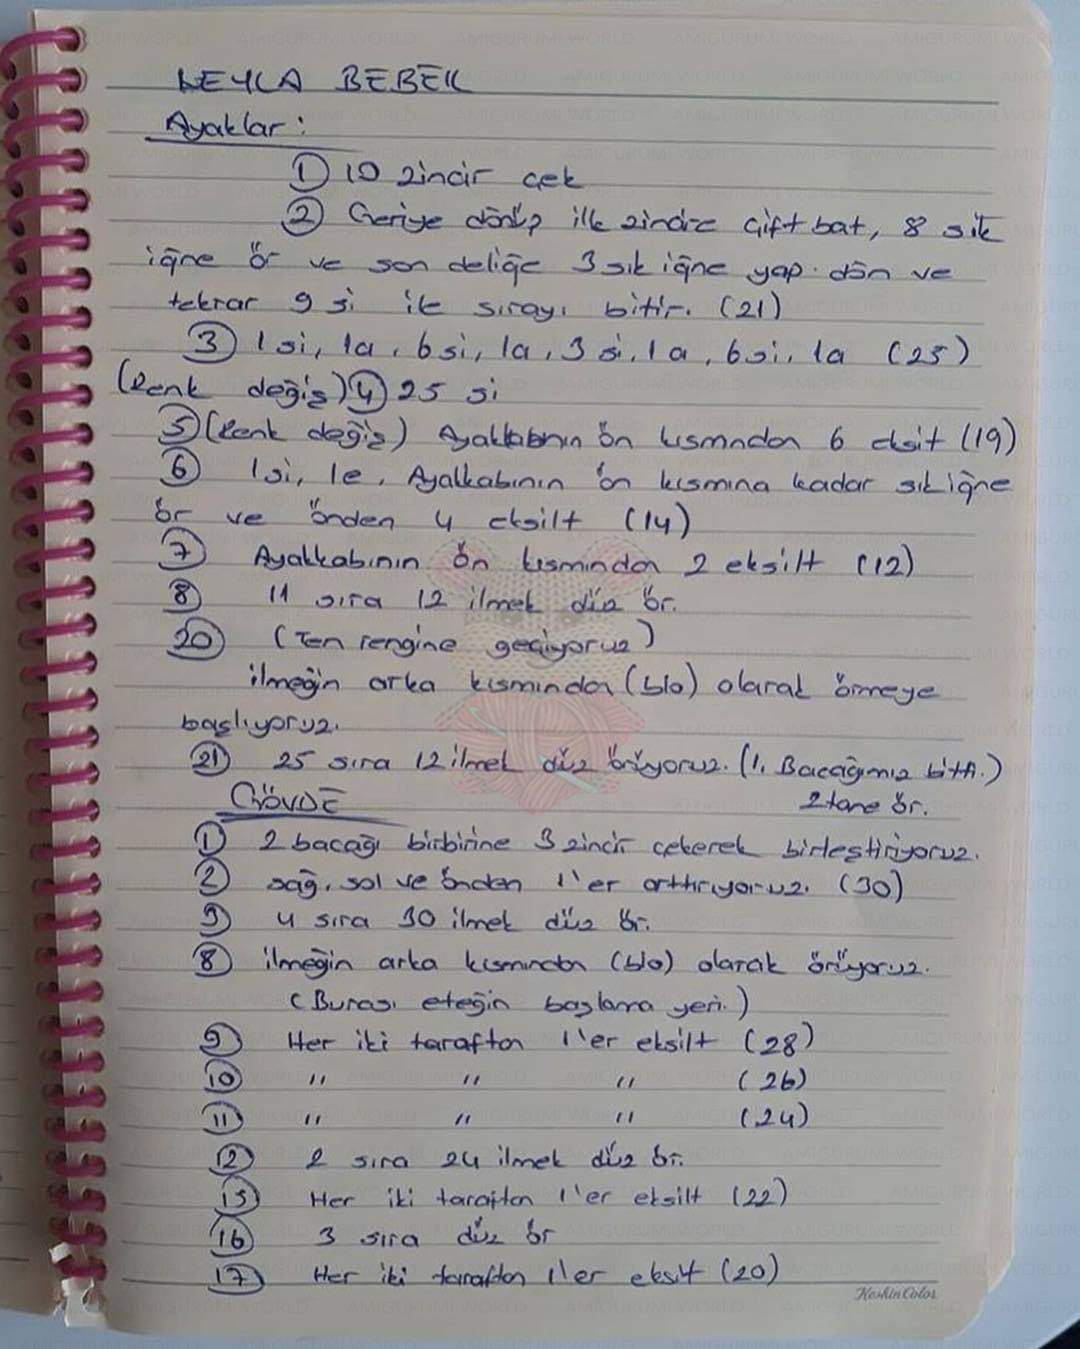 LEYLA BEBEK
Ayaklar:
① 10 zincir çek
② Geriye dönüp ilk zincire çift bat, 8 sık
iğne ör ve son deliğe 3 sık iğne yap. dön ve
tekrar 9 si ile sırayı bitir. (21)
③ 1 si, 1a, 6 si, 1a, 3 si, 1a, 6 si, 1a (25)
(Renk değiş) ④ 25 si
⑤ (Renk değiş) Ayakkabının ön kısmından 6 eksit (19)
⑥ 1si, 1e, Ayakkabının ön kısmına kadar sık iğne
ör ve önden 4 eksilt (14)
⑦ Ayakkabının ön kısmından 2 eksilt (12)
⑧ 11 sıra 12 ilmek düz ör.
⑳ (Ten rengine geçiyoruz)
ilmeğin arka kısmından (blo) olarak örmeye
başlıyoruz.
㉑ 25 sıra 12 ilmek düz örüyoruz. (1. Bacağımız bitti.)
2 tane ör.
GÖVDE
① 2 bacağı birbirine 3 zincir çekerek birleştiriyoruz.
② sağ, sol ve önden 1'er arttırıyoruz. (30)
③ 4 sıra 30 ilmek düz ör.
⑧ ilmeğin arka kısmından (blo) olarak örüyoruz.
(Burası eteğin başlama yeri.)
⑨ Her iki taraftan 1'er eksilt (28)
⑩ " " " (26)
⑪ " " " (24)
⑫ 2 sıra 24 ilmek düz ör.
⑮ Her iki taraftan 1'er eksilt (22)
⑯ 3 sıra düz ör
⑰ Her iki taraftan 1'er eksit (20)
KeskinColor